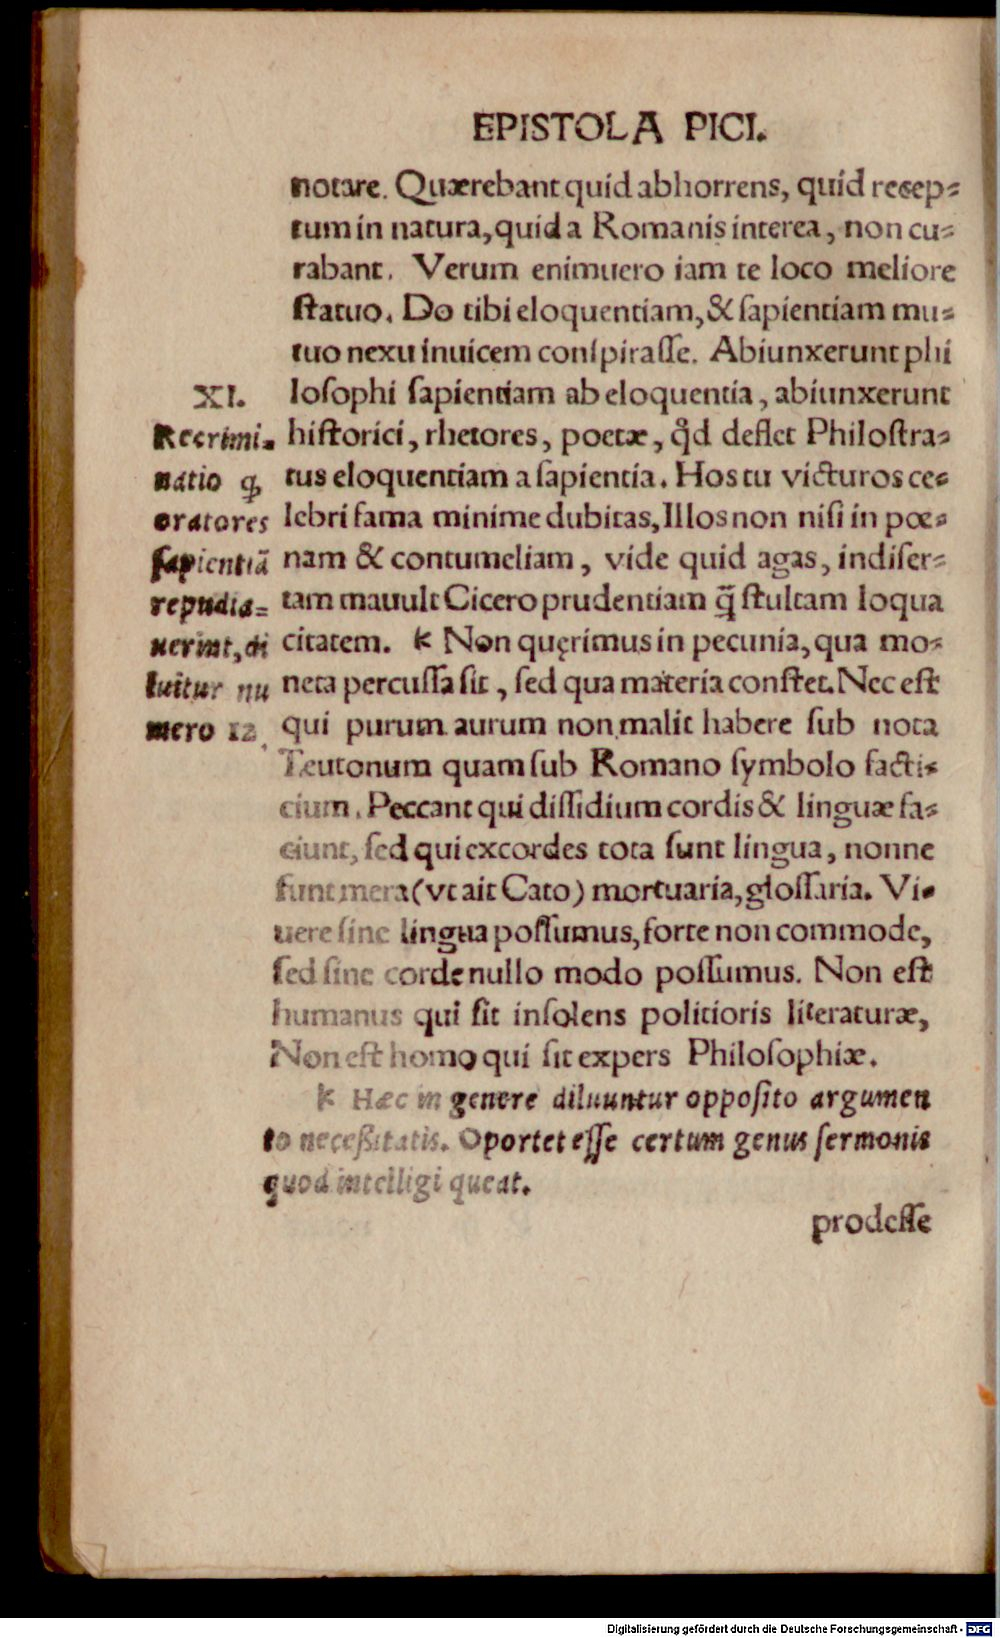 EPISTOLA PICI.
notare. Quærebant quid abhorrens, quid recep⸗
tum in natura, quid a Romanis interea, non cu⸗
rabant. Verum enimuero iam te loco meliore
ſtatuo. Do tibi eloquentiam, & ſapientiam mu⸗
tuo nexu inuicem conſpiraſſe. Abiunxerunt phi
loſophi ſapientiam ab eloquentia, abiunxerunt
hiſtorici, rhetores, poetæ, qd̃ deflet Philoſtra⸗
tus eloquentiam a ſapientia. Hos tu victuros ce⸗
lebri fama minime dubitas, Illos non niſi in pœ⸗
nam & contumeliam, vide quid agas, indiſer⸗
tam mauult Cicero prudentiam q̃ ſtultam loqua
citatem. k Non quęrimus in pecunia, qua mo⸗
neta percuſſa ſit, ſed qua materia conſtet. Nec eſt
qui purum aurum non malit habere ſub nota
Teutonum quam ſub Romano ſymbolo facti⸗
cium. Peccant qui diſſidium cordis & linguæ fa⸗
ciunt, ſed qui excordes tota ſunt lingua, nonne
ſunt mera (vt ait Cato) mortuaria, gloſſaria. Vi⸗
uere ſine lingua poſſumus, forte non commode,
ſed ſine corde nullo modo poſſumus. Non eſt
humanus qui ſit inſolens politioris literaturæ,
Non eſt homo qui ſit expers Philoſophiæ.
k Hæc in genere diluuntur oppoſito argumen
to neceſſitatis. Oportet eſſe certum genus ſermonis
quod intelligi queat.
prodeſſe
XI.
Recrimi⸗
natio ꝙ
oratores
ſapientiã
repudia⸗
uerint, di
luitur nu
mero 12.
Digitalisierung gefördert durch die Deutsche Forschungsgemeinschaft - DFG